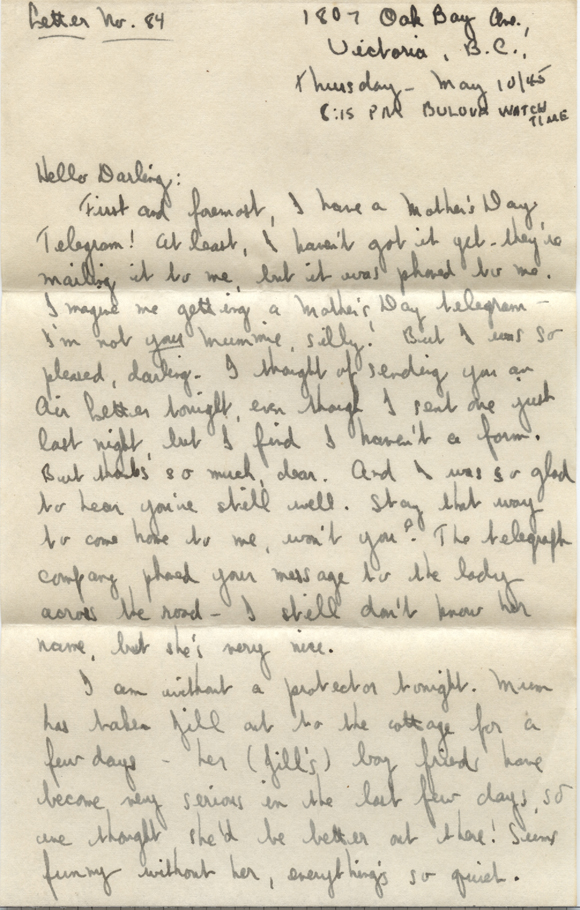 Letter No. 84
1807 Oak Bay Ave.,
Victoria, B.C.,
Thursday - May 10/45
8:15 PM BULOVA WATCH
TIME
Hello Darling:
First and foremost, I have a Mother's Day
Telegram! At least, I haven't got it yet - they're
mailing it to me, but it was phoned to me.
Imagine me getting a Mother's Day telegram -
I'm not your Mummie, silly! But I was so
pleased, darling. I thought of sending you an
Air Letter tonight, even though I sent one just
last night, but I find I haven't a form.
But thanks so much, dear. And I was so glad
to hear you're still well. Stay that way
to come home to me, won't you? The telegraph
company phoned your message to the lady
across the road - I still don't know her
name, but she's very nice.
I am without a protector tonight. Mum
has taken Jill out to the cottage for a
few days - her (Jill's) boy friends have
become very serious in the last few days, so
we thought she'd be better out there! Seems
funny without her, everything's so quiet.